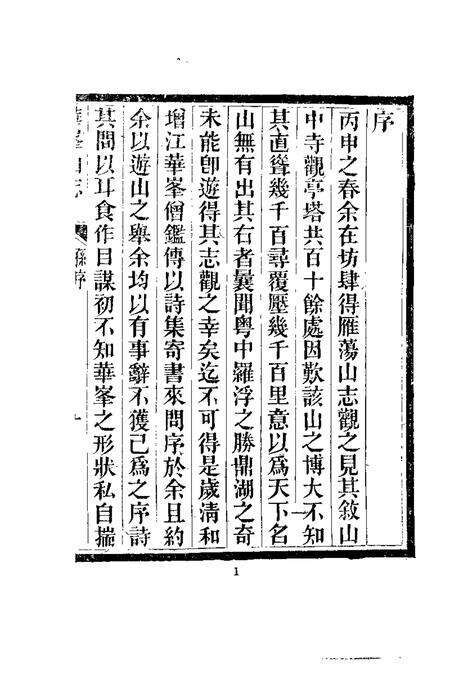 序
丙申之春余在坊肆得雁蕩山志觀之見其敘山
中寺觀亭塔共百十餘處因歎該山之博大不知
其直聳幾千百尋覆壓幾千百里意以爲天下名
山無有出其右者曩聞粵中羅浮之勝鼎湖之奇
未能卽遊得其志觀之幸矣迄不可得是歲清和
增江華峯僧鑑傳以詩集寄書來問序於余且約
余以遊山之舉余均以有事辭不獲已爲之序詩
其間以耳食作目謀初不知華峯之形狀私自揣
華峯山志
孫序
一
1